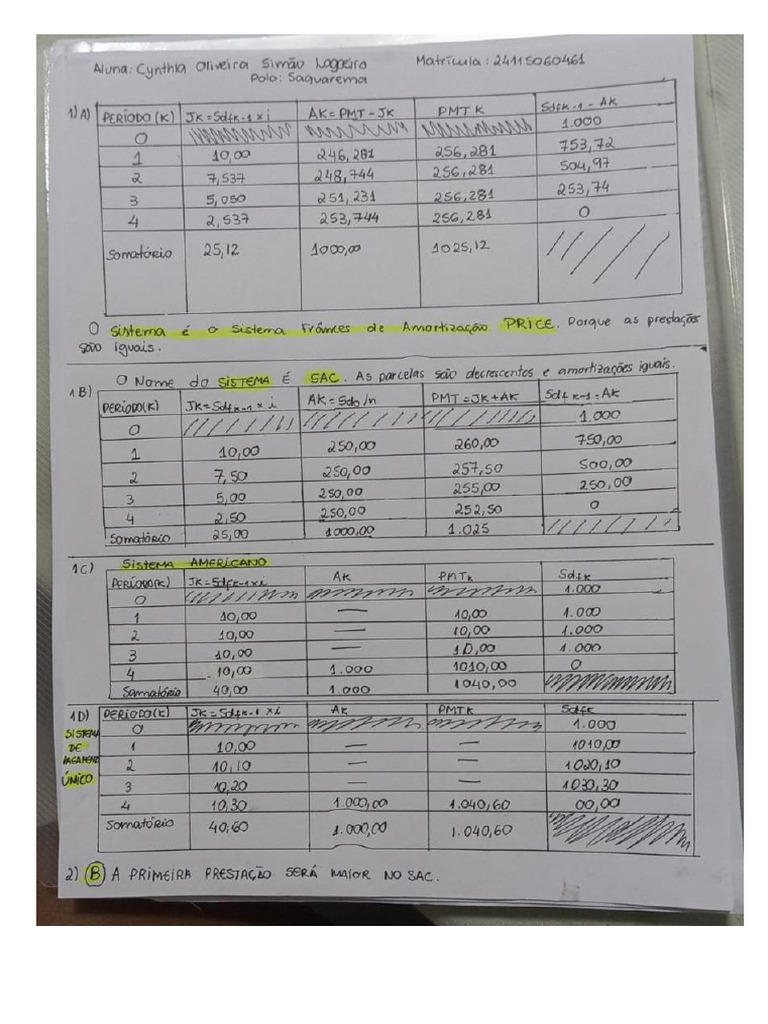 Aluna: Cynthia Oliveira Simão Logeiro Matrícula: 24115060461
Polo: Saquarema
1) A) PERÍODO (K) JK = Sdfk-1 x i AK = PMT - JK PMT K Sdfk-1 - AK
0 1.000
1 10,00 246,281 256,281 753,72
2 7,537 248,744 256,281 504,97
3 5,050 251,231 256,281 253,74
4 2,537 253,744 256,281 0
Somatório 25,12 1000,00 1025,12
O sistema é o Sistema Frânces de Amortização PRICE. Porque as prestações
são iguais.
O Nome do SISTEMA É SAC. As parcelas são decrescentes e amortizações iguais.
1B) PERÍODO(K) JK = Sdfk-1 x i AK = Sdo/n PMT = JK + AK Sdfk-1 = AK
0 1.000
1 10,00 250,00 260,00 750,00
2 7,50 250,00 257,50 500,00
3 5,00 250,00 255,00 250,00
4 2,50 250,00 252,50 0
Somatório 25,00 1000,00 1.025
1C) Sistema AMERICANO
PERÍODO(K) JK = Sdfk-1 x i AK PMTk Sdfk
0 1.000
1 10,00 — 10,00 1.000
2 10,00 — 10,00 1.000
3 10,00 — 10,00 1.000
4 10,00 1.000 1010,00 0
Somatório 40,00 1.000 1040,00
1D) PERÍODO(K) JK = Sdfk-1 x i AK PMTK Sdfk
SISTEMA DE PAGAMENTO ÚNICO
0 1.000
1 10,00 — — 1010,00
2 10,10 — — 1020,10
3 10,20 — — 1030,30
4 10,30 1.000,00 1.040,60 00,00
Somatório 40,60 1.000,00 1.040,60
2) B A PRIMEIRA PRESTAÇÃO SERÁ MAIOR NO SAC.